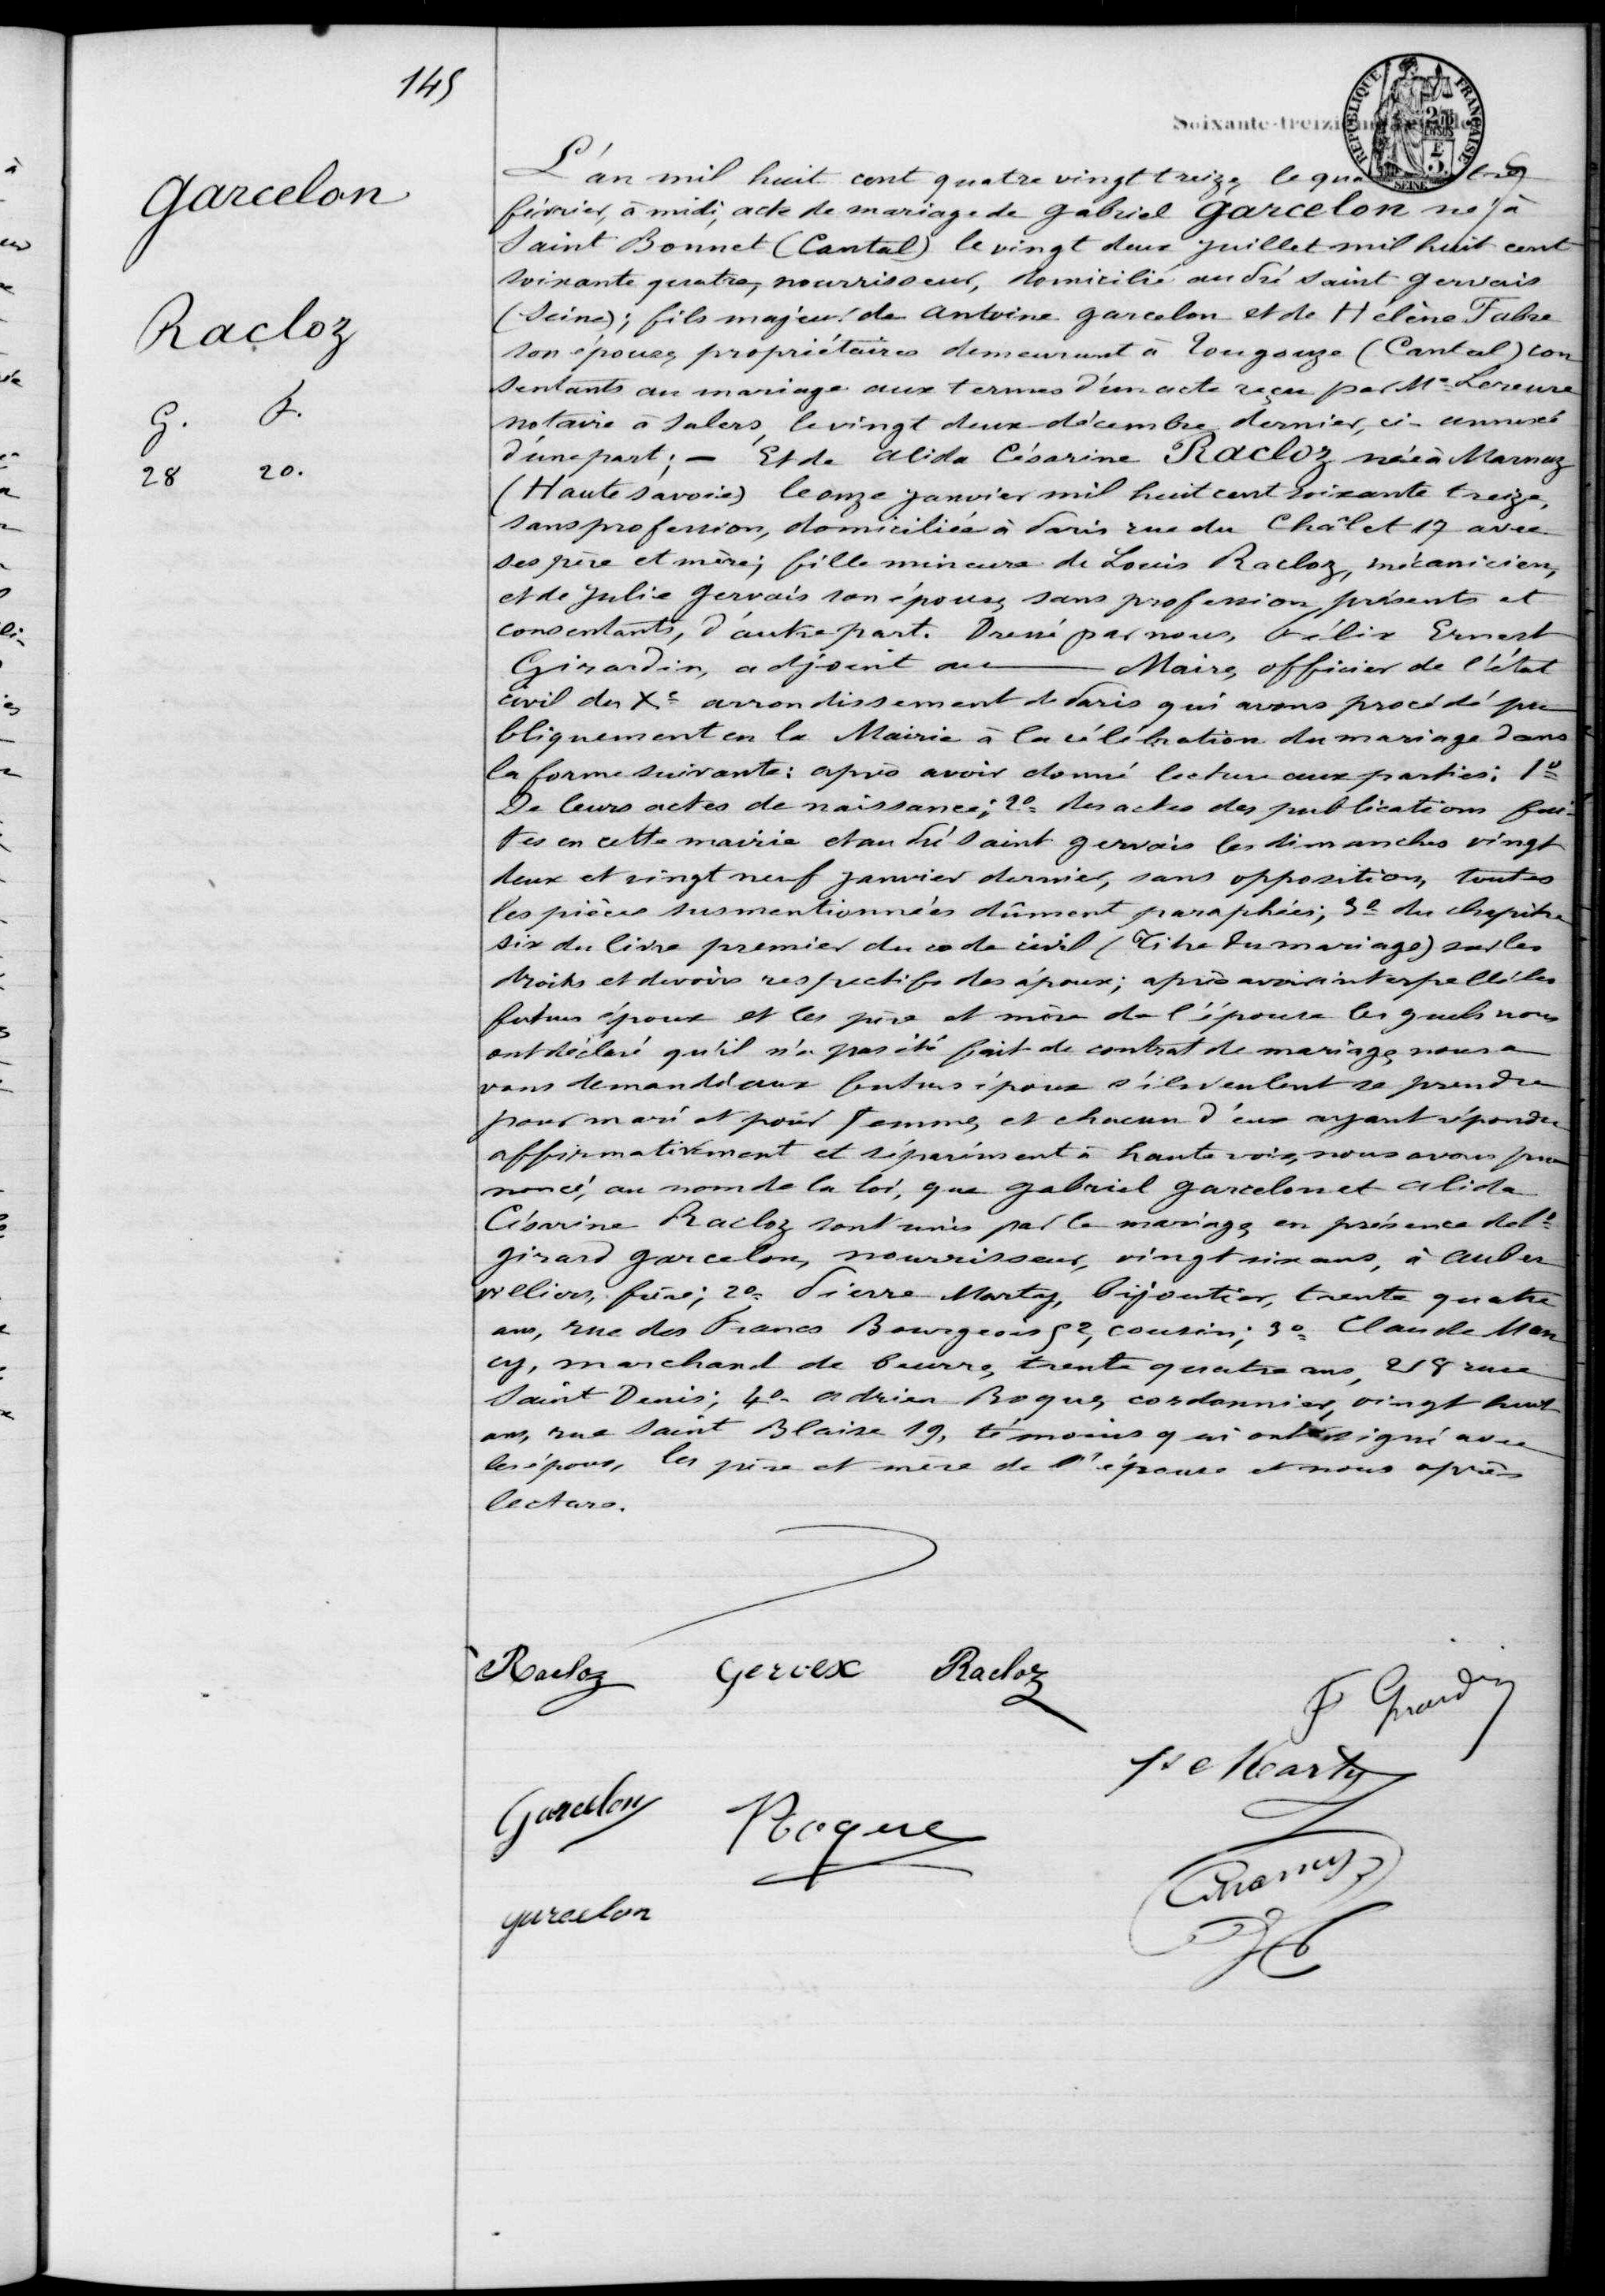 145
Soixante-treizième
RÉPUBLIQUE FRANÇAISE
SEINE
Garcelon
Racloz
G. F.
28 20.
L'an mil huit cent quatre vingt treize, le
février, à midi, acte de mariage de Gabriel Garcelon né à
Saint Bonnet (Cantal) le vingt deux juillet mil huit cent
soixante quatre, nourrisseur, domicilié au Pré Saint Gervais
(Seine); fils majeur de Antoine Garcelon et de Hélène Fabre
son épouse, propriétaires demeurant à Tougouze (Cantal) con
sentants au mariage aux termes d'un acte reçu par Me
notaire à Salers, le vingt deux décembre dernier, ci-annexé
d'une part; — Et de Alida Césarine Racloz née à Marnaz
(Haute Savoie) le onze janvier mil huit cent soixante treize,
sans profession, domiciliée à Paris rue du Châlet 17 avec
ses père et mère; fille mineure de Louis Racloz, mécanicien,
et de Julie Gervais son épouse, sans profession, présents et
consentants, d'autre part. Dressé par nous, Félix Ernest
Girardin, adjoint au — Maire, officier de l'état
civil du Xe arrondissement de Paris qui avons procédé pu
bliquement en la Mairie à la célébration du mariage dans
la forme suivante: après avoir donné lecture aux parties: 1o
De leurs actes de naissance; 2o des actes des publications fai-
tes en cette mairie et au Pré Saint Gervais les dimanches vingt
deux et vingt neuf janvier dernier, sans opposition, toutes
les pièces susmentionnées dûment paraphées; 3o du chapitre
six du livre premier du code civil (Titre du mariage) sur les
droits et devoirs respectifs des époux; après avoir interpellé les
futurs époux et les père et mère de l'épouse lesquels nous
ont déclaré qu'il n'a pas été fait de contrat de mariage, nous a
vons demandé aux futurs époux s'ils veulent se prendre
pour mari et pour femme, et chacun d'eux ayant répondu
affirmativement et séparément à haute voix, nous avons pro
noncé, au nom de la loi, que Gabriel Garcelon et Alida
Césarine Racloz sont unis par le mariage, en présence de 1o
Girard Garcelon, nourrisseur, vingt six ans, à Auber
villiers, frère; 2o Pierre Marty, bijoutier, trente quatre
ans, rue des Francs Bourgeois 52, cousin; 3o Claude Man
cy, marchand de beurre, trente quatre ans, 218 rue
Saint Denis; 4o Adrien Roque, cordonnier, vingt huit
ans, rue Saint Blaise 19, témoins qui ont signé avec
les époux, les père et mère de l'épouse et nous après
lecture.
Racloz Gervex Racloz
F Girardin
Garcelon Roque
Marty
garcelon